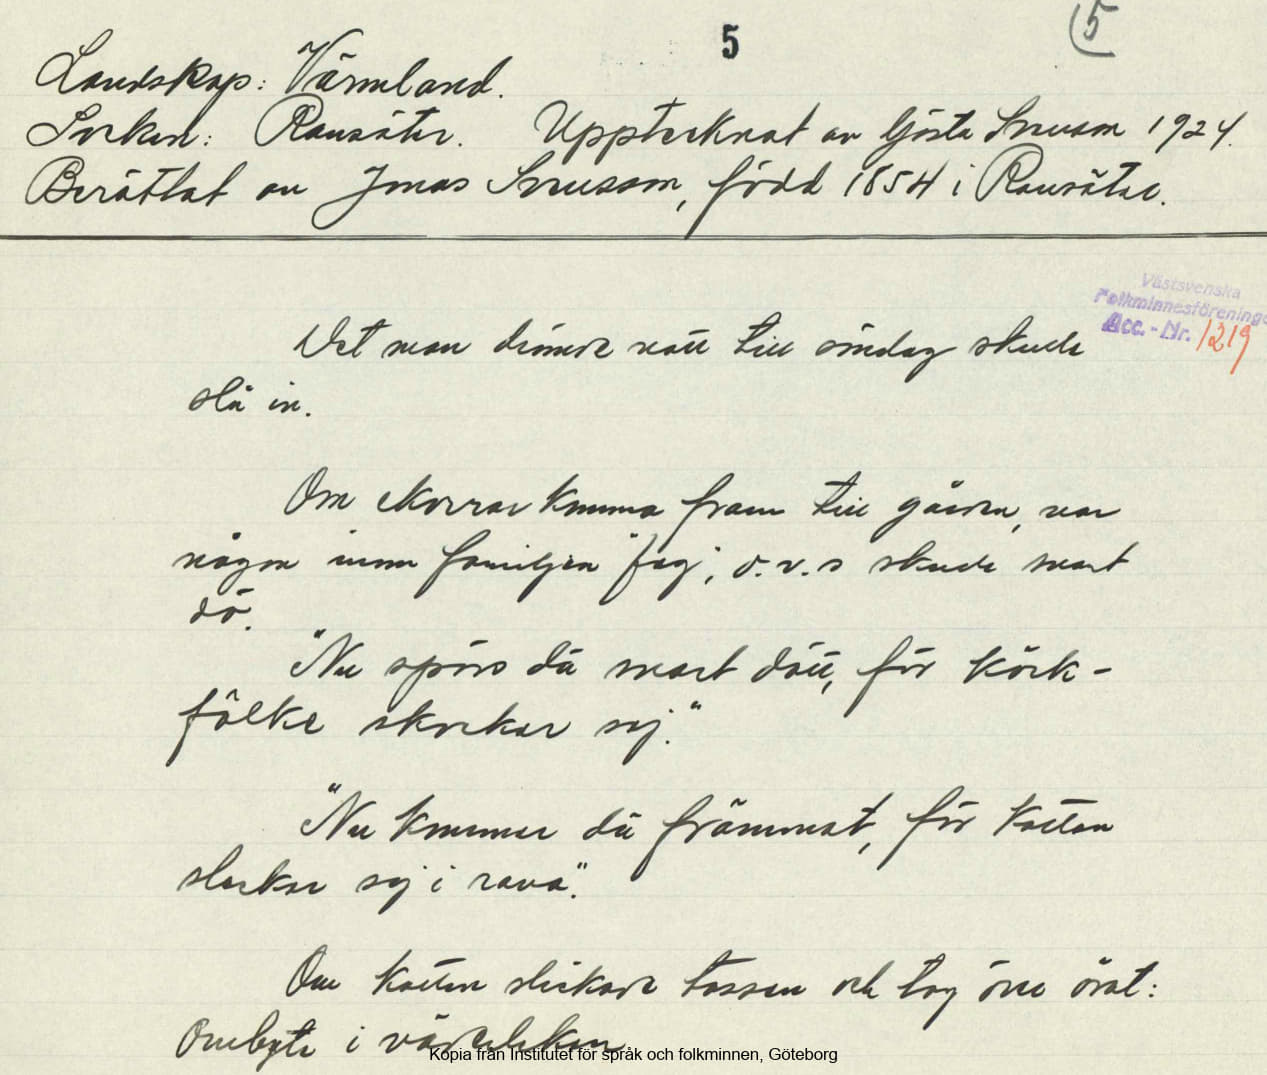 5
(5
Landskap: Värmland.
Socken: Ransäter. Upptecknat av Gösta Svensson 1924.
Berättat av Jonas Svensson, född 1854 i Ransäter.
Västsvenska
Folkminnesföreningen
Acc.-Nr. 1219
Det man drömde natt till söndag skulle
slå in.
Om skorrar komma fram till gården, var
någon inom familjen "fej", d.v.s skulle snart
dö.
"Nu spörs dä snart dött, för körk-
fölke skockar sej."
"Nu kommer dä främmat, för katten
sleckar sej i rava".
Om katten slickade tassen och tog över örat:
Ombyte i väderleken.
Kopia från Institutet för språk och folkminnen, Göteborg